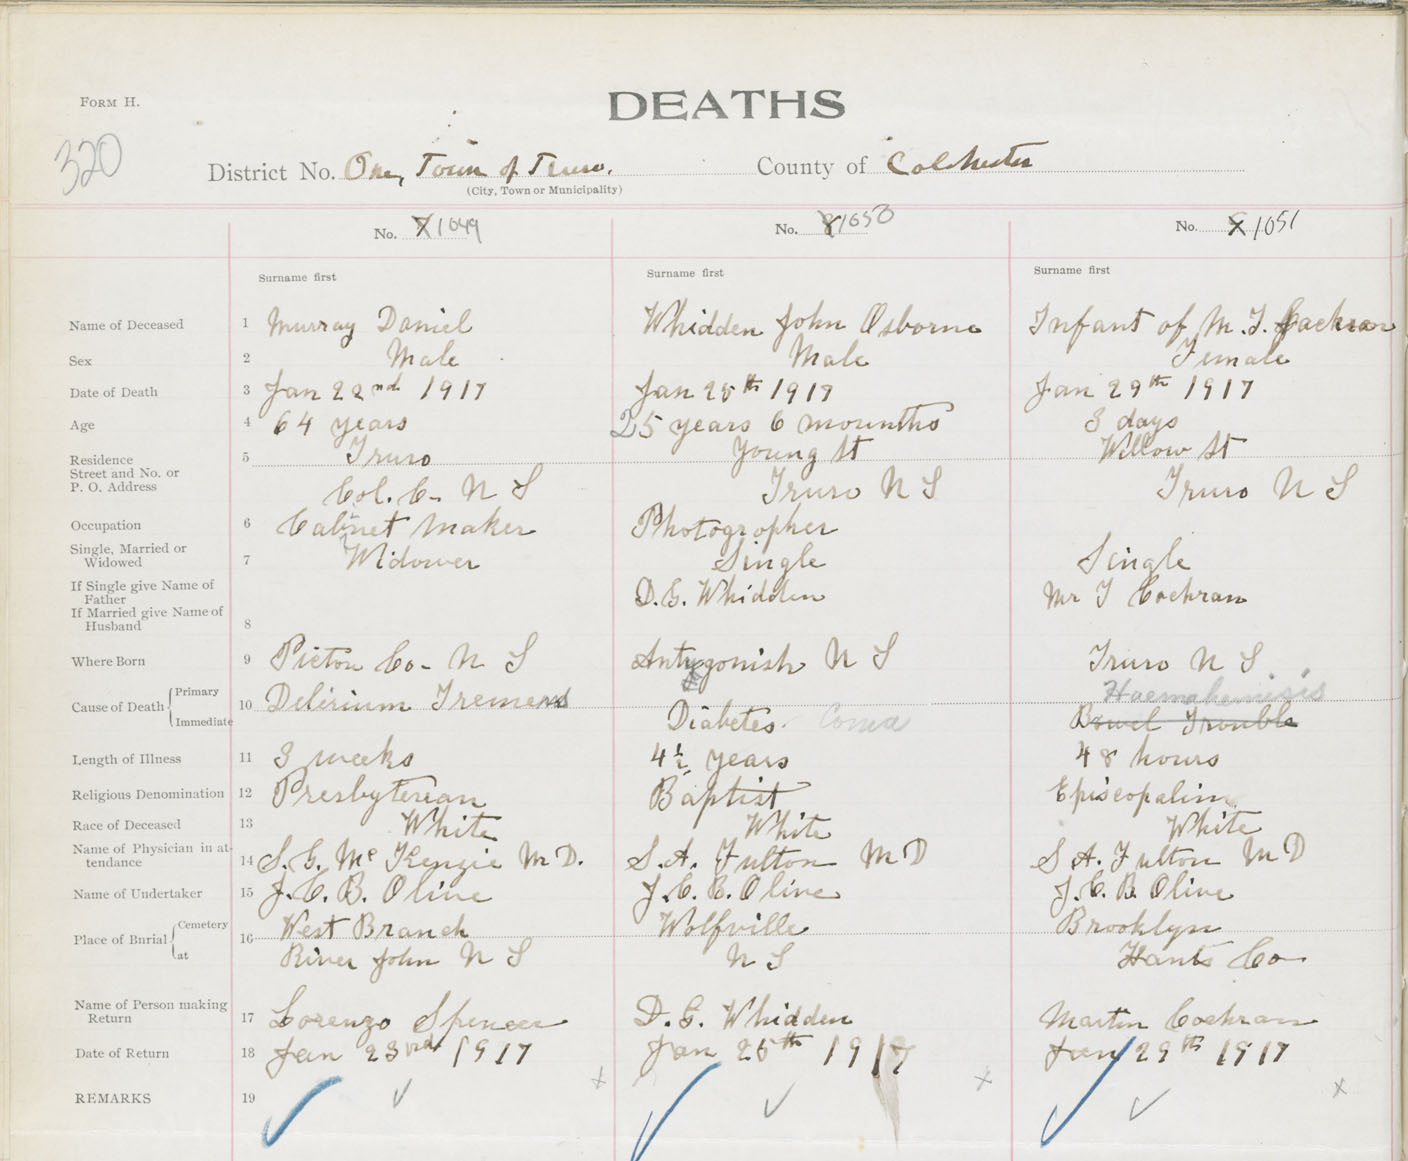 FORM H.
DEATHS
320
District No. One, Town of Truro. County of Colchester
(City, Town or Municipality)
No. 7 1049 No. 8 1050 No. 9 1051
Surname first Surname first Surname first
Name of Deceased 1 Murray Daniel Whidden John Osborne Infant of M. T. Cochran
Sex 2 Male Male Female
Date of Death 3 Jan 22nd 1917 Jan 25th 1917 Jan 29th 1917
Age 4 64 years 25 years 6 mounths 3 days
Residence 5 Truro Young St Willow St
Street and No. or
P. O. Address Col. Co- N S Truro N S Truro N S
Occupation 6 Cabinet Maker Photogropher
Single, Married or
Widowed 7 Widower Single Single
If Single give Name of
Father D. G. Whidden Mr T Cochran
If Married give Name of
Husband 8
Where Born 9 Pictou Co- N S Antygonish N S Truro N S
Primary Haemahemisis
Cause of Death 10 Delirium Tremens
Immediate Diabetes. Coma Bowel Trouble
Length of Illness 11 3 weeks 4½ years 48 hours
Religious Denomination 12 Presbyterian Baptist Episcopalin
Race of Deceased 13 White White White
Name of Physician in at-
tendance 14 S. G. Mc Kenzie M D. S. A. Fulton M D S A. Fulton M D
Name of Undertaker 15 J. C. B. Olive J. C. B. Olive J. C. B. Olive
Cemetery West Branch Wolfville Brooklyn
Place of Burial 16
at River John N S N S Hants Co-
Name of Person making
Return 17 Lorenzo Spencer D. G. Whidden Martin Cochran
Date of Return 18 Jan 23rd 1917 Jan 25th 1917 Jan 29th 1917
REMARKS 19